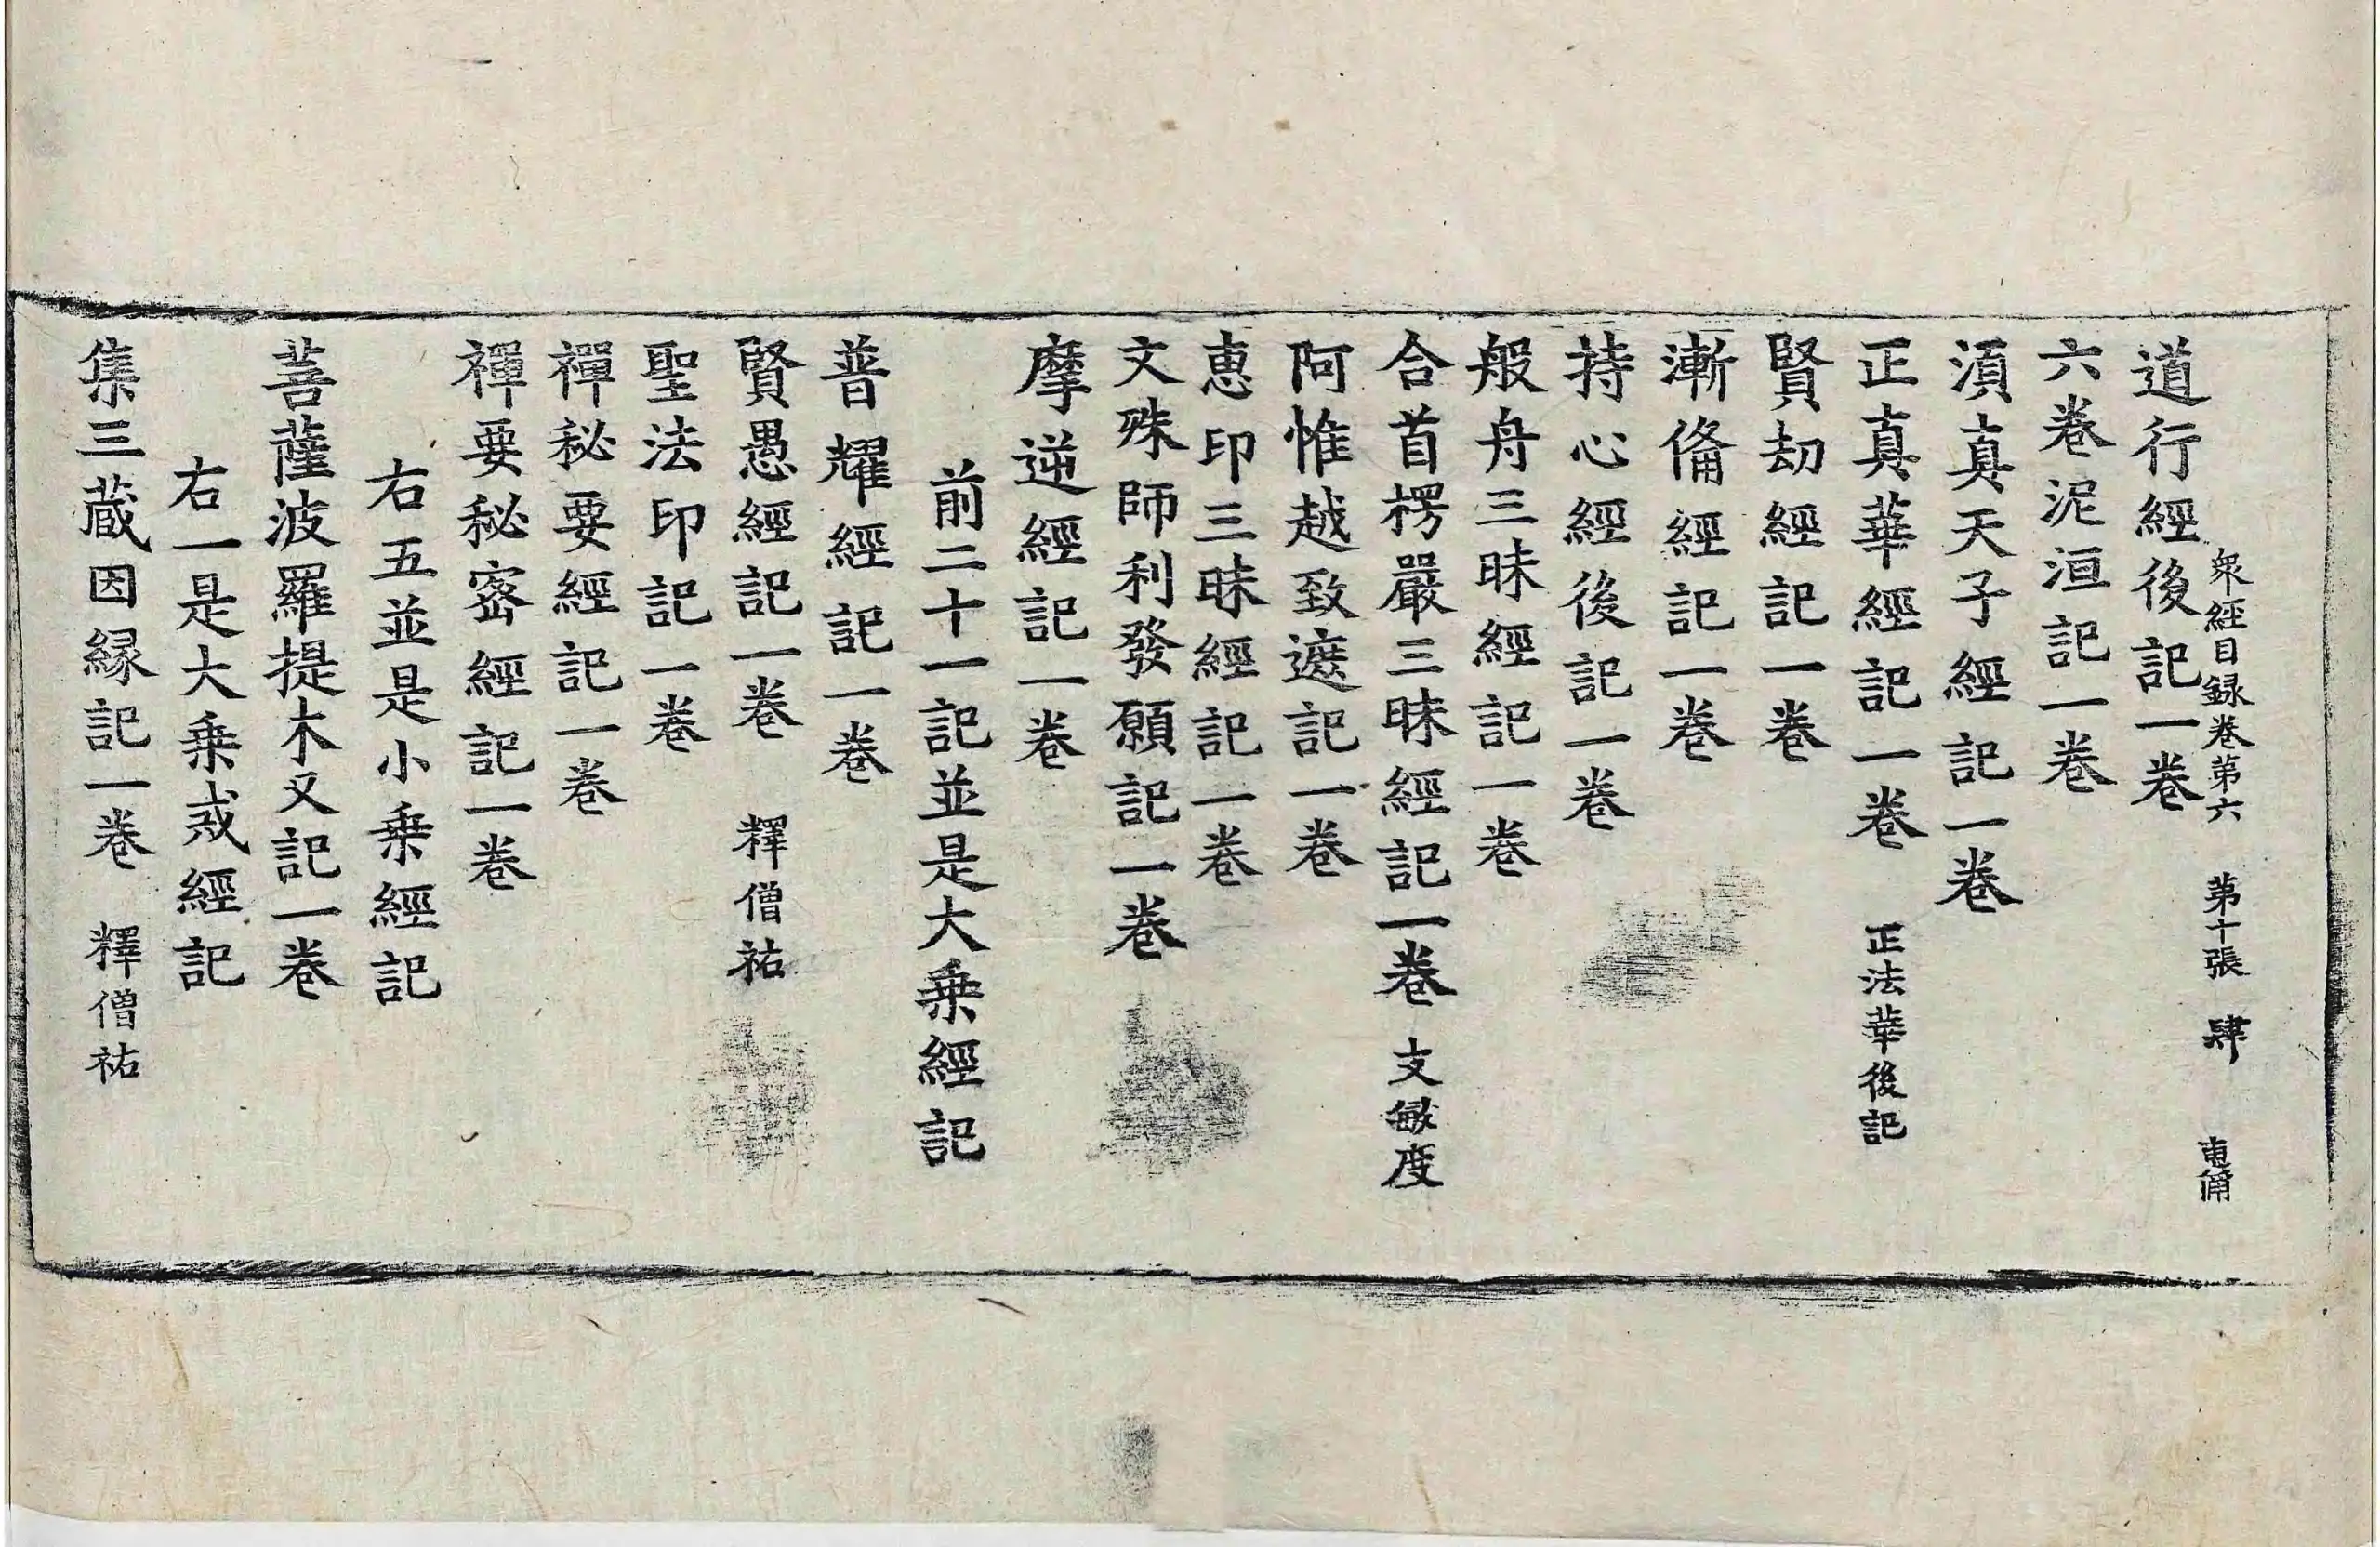 衆經目録卷第六 第十張 肆 東備
道行經後記一卷
六卷泥洹記一卷
湏真天子經記一卷
正真華經記一卷 正法華後記
賢刧經記一卷
漸俻經記一卷
持心經後記一卷
般舟三昧經記一卷
合首楞嚴三昧經記一卷 支敏度
阿惟越致遮記一卷
惠印三昧經記一卷
文殊師利發願記一卷
摩逆經記一卷
前二十一記並是大乗經記
普耀經記一卷
賢愚經記一卷 釋僧祐
聖法印記一卷
禪秘要經記一卷
禪要秘宻經記一卷
右五並是小乗經記
菩薩波羅提木叉記一卷
右一是大乗戒經記
集三蔵因縁記一卷 釋僧祐